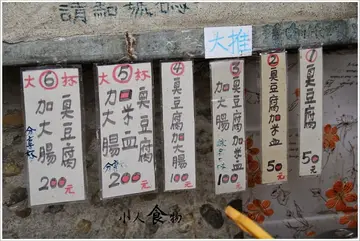 請細嚼
大推
①
臭豆腐
50元
②
臭豆腐加米血
50元
③
臭豆腐加米血
加大腸
100元
④
臭豆腐加大腸
100元
大⑤杯
臭豆腐
加米血
加大腸
200元
大⑥杯
臭豆腐
加大腸
200元
小人食物